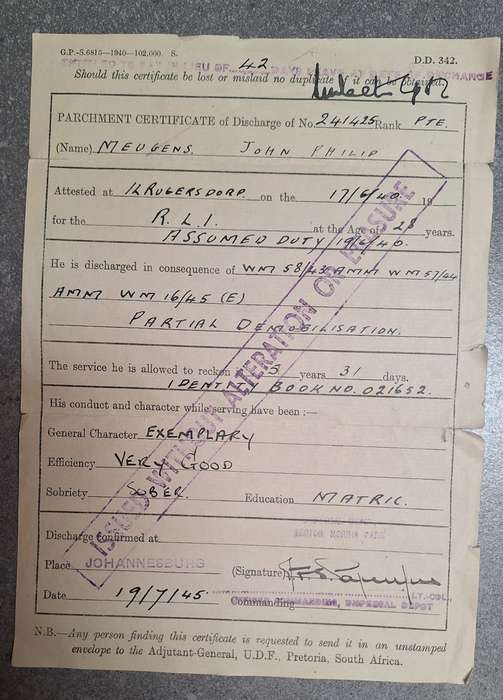 G.P.-S.6815—1940—102,000. S.
D.D. 342.
ENTITLED TO PAY IN LIEU OF 42 DAYS LEAVE DISCHARGE
Should this certificate be lost or mislaid no duplicate of it can be obtained.
PARCHMENT CERTIFICATE of Discharge of No. 241425 Rank PTE.
(Name) MEUGENS. JOHN PHILIP
Attested at KRUGERSDORP. on the 17/6/40 19
for the R.L.I. at the Age of 28 years.
ASSUMED DUTY 19/6/40.
He is discharged in consequence of WM 58/43 AMM WM 57/44
AMM WM 16/45 (E)
PARTIAL DEMOBILISATION.
The service he is allowed to reckon is 5 years 31 days.
IDENTITY BOOK NO. 021652.
His conduct and character while serving have been :—
General Character EXEMPLARY
Efficiency VERY GOOD
Sobriety SOBER. Education MATRIC.
Discharge confirmed at
Place JOHANNESBURG
(Signature)
LT.-COL.
Date 19/7/45. Commanding
COMMANDING, DISPERSAL DEPOT
ISSUED WITHOUT ALTERATION OR ERASURE
N.B.—Any person finding this certificate is requested to send it in an unstamped
envelope to the Adjutant-General, U.D.F., Pretoria, South Africa.